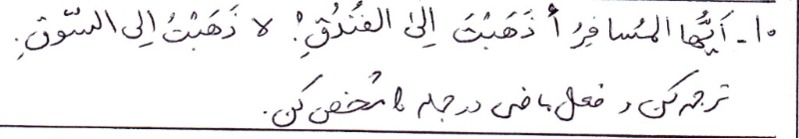 ۱۰- أَيُّهَا المُسافِرُ أَ ذَهَبْتَ إِلىٰ الفُنْدُقِ؟ لا ذَهَبْتُ إِلى السّوقِ.
ترجمه کن و فعل ماضی در جمله را مشخص کن.